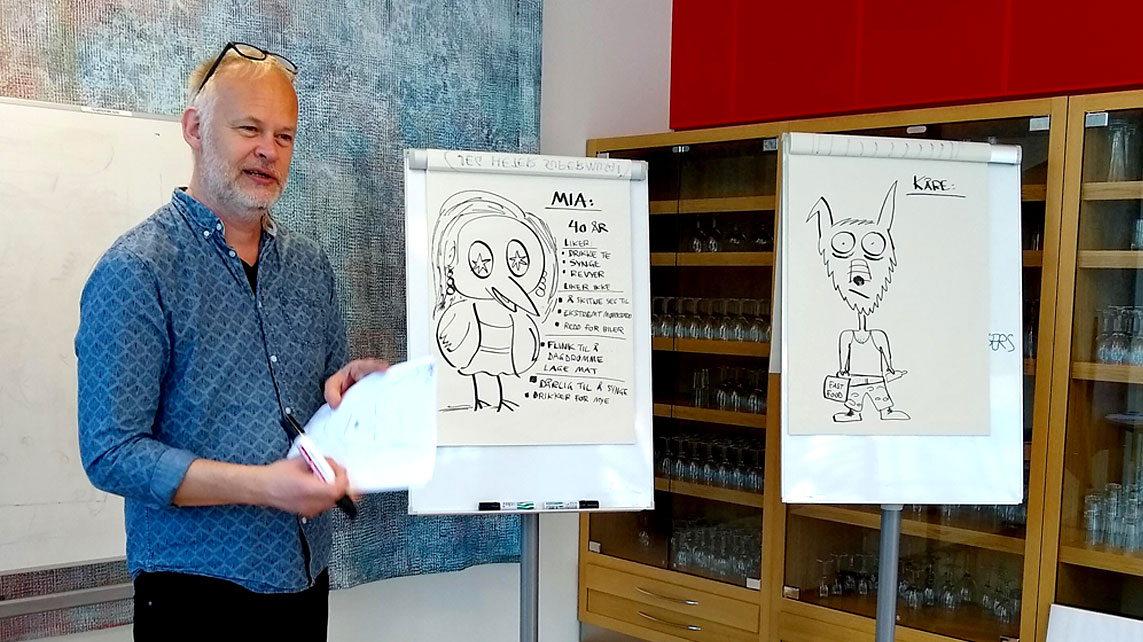 MIA:
40 ÅR
LIKER:
• DRIKKE TE
• SYNGE
• REVYER
LIKER IKKE
• Å SKITNE SEG TIL
• EKSTREMT
• REDD FOR BILER
• FLINK TIL Å
DAGDRØMME
LAGE MAT
• DÅRLIG TIL Å SYNGE
• DRIKKER FOR MYE
KÅRE:
FAST
FOOD